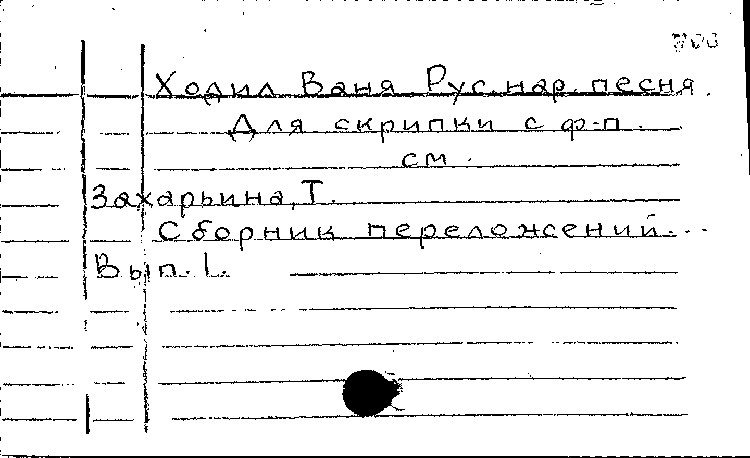 Ходил Ваня Рус. нар. песня.
Для скрипки с ф-п.
см.
Захарьина, Т.
Сборник переложений...
Вып. 1.